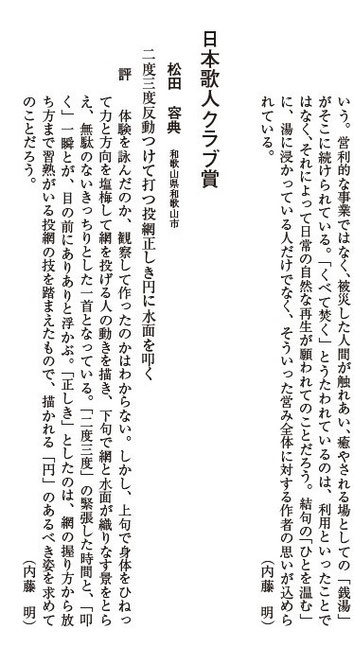 いう。営利的な事業ではなく、被災した人間が触れあい、癒やされる場としての「銭湯」
がそこに続けられている。「くべて焚く」とうたわれているのは、利用といったことで
はなく、それによって日常の自然な再生が願われてのことだろう。結句の「ひとを温む」
に、湯に浸かっている人だけでなく、そういった営み全体に対する作者の思いが込めら
れている。
（内藤　明）
日本歌人クラブ賞
松田　容典　和歌山県和歌山市
二度三度反動つけて打つ投網正しき円に水面を叩く
評　体験を詠んだのか、観察して作ったのかはわからない。しかし、上句で身体をひねっ
て力と方向を塩梅して網を投げる人の動きを描き、下句で網と水面が織りなす景をとら
え、無駄のないきっちりとした一首となっている。「二度三度」の緊張した時間と、「叩
く」一瞬とが、目の前にありありと浮かぶ。「正しき」としたのは、網の握り方から放
ち方まで習熟がいる投網の技を踏まえたもので、描かれる「円」のあるべき姿を求めて
のことだろう。
（内藤　明）